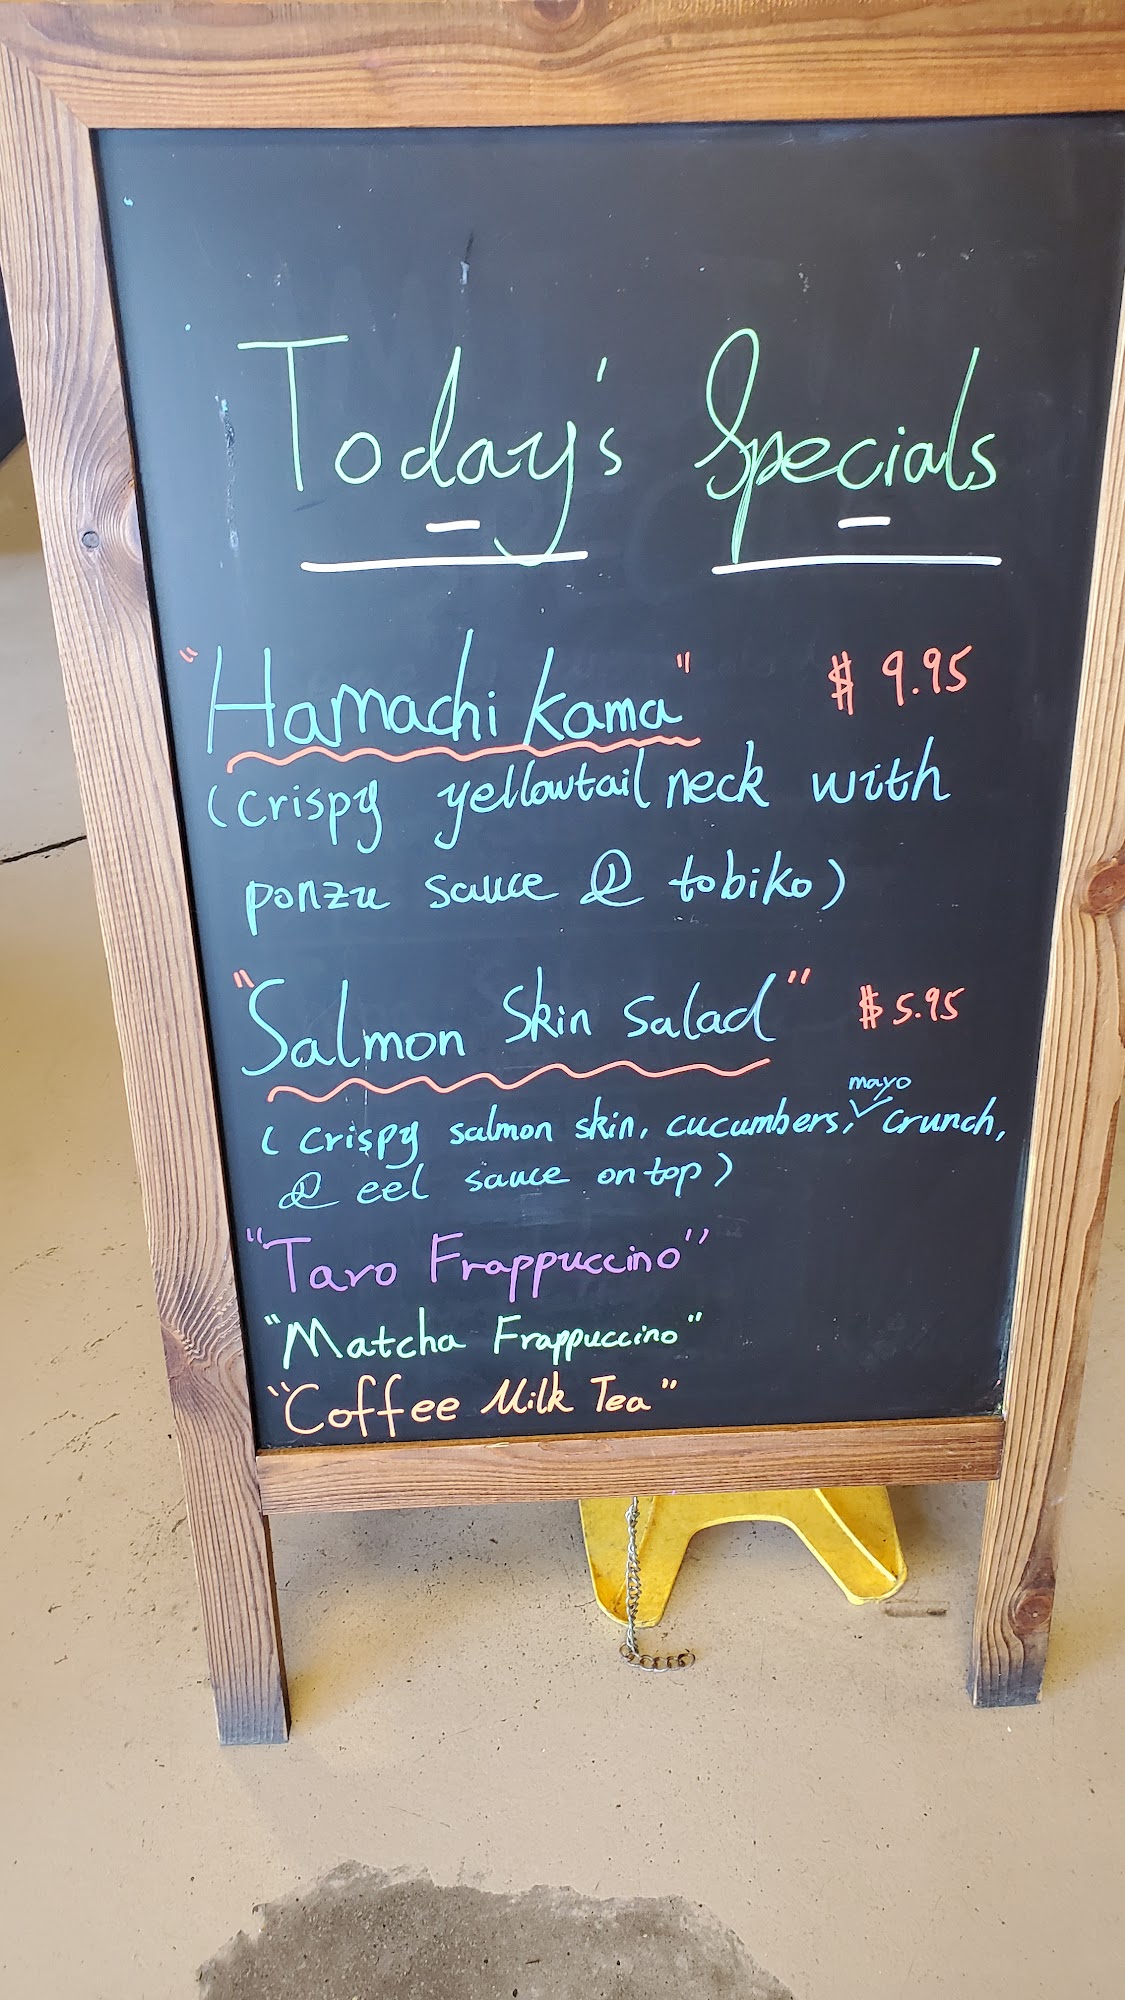 Today's Specials
"Hamachi Kama" $ 9.95
(crispy yellowtail neck with
ponzu sauce & tobiko)
"Salmon Skin Salad" $ 5.95
mayo
(crispy salmon skin, cucumbers, crunch,
& eel sauce on top)
"Taro Frappuccino"
"Matcha Frappuccino"
"Coffee Milk Tea"